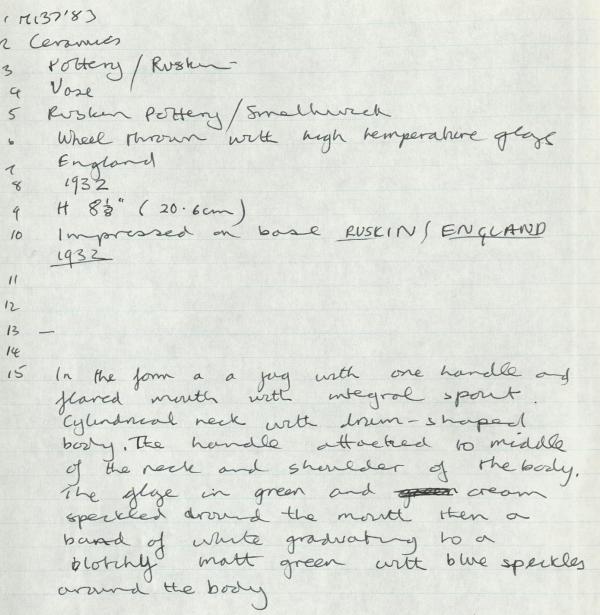 1 M(37'83)
2 Ceramics
3 Pottery / Ruskin
4 Vase
5 Ruskin Pottery / Smethwick
6 Wheel thrown with high temperature glaze
7 England
8 1932
9 H 8⅛" (20.6cm)
10 Impressed on base RUSKIN/ENGLAND
1932
11
12
13 —
14
15 In the form a a jug with one handle and
flared mouth with integral spout.
Cylindrical neck with drum-shaped
body. The handle attached to middle
of the neck and shoulder of the body.
The glaze in green and cream
speckled around the mouth then a
band of white graduating to a
blotchy matt green with blue speckles
around the body